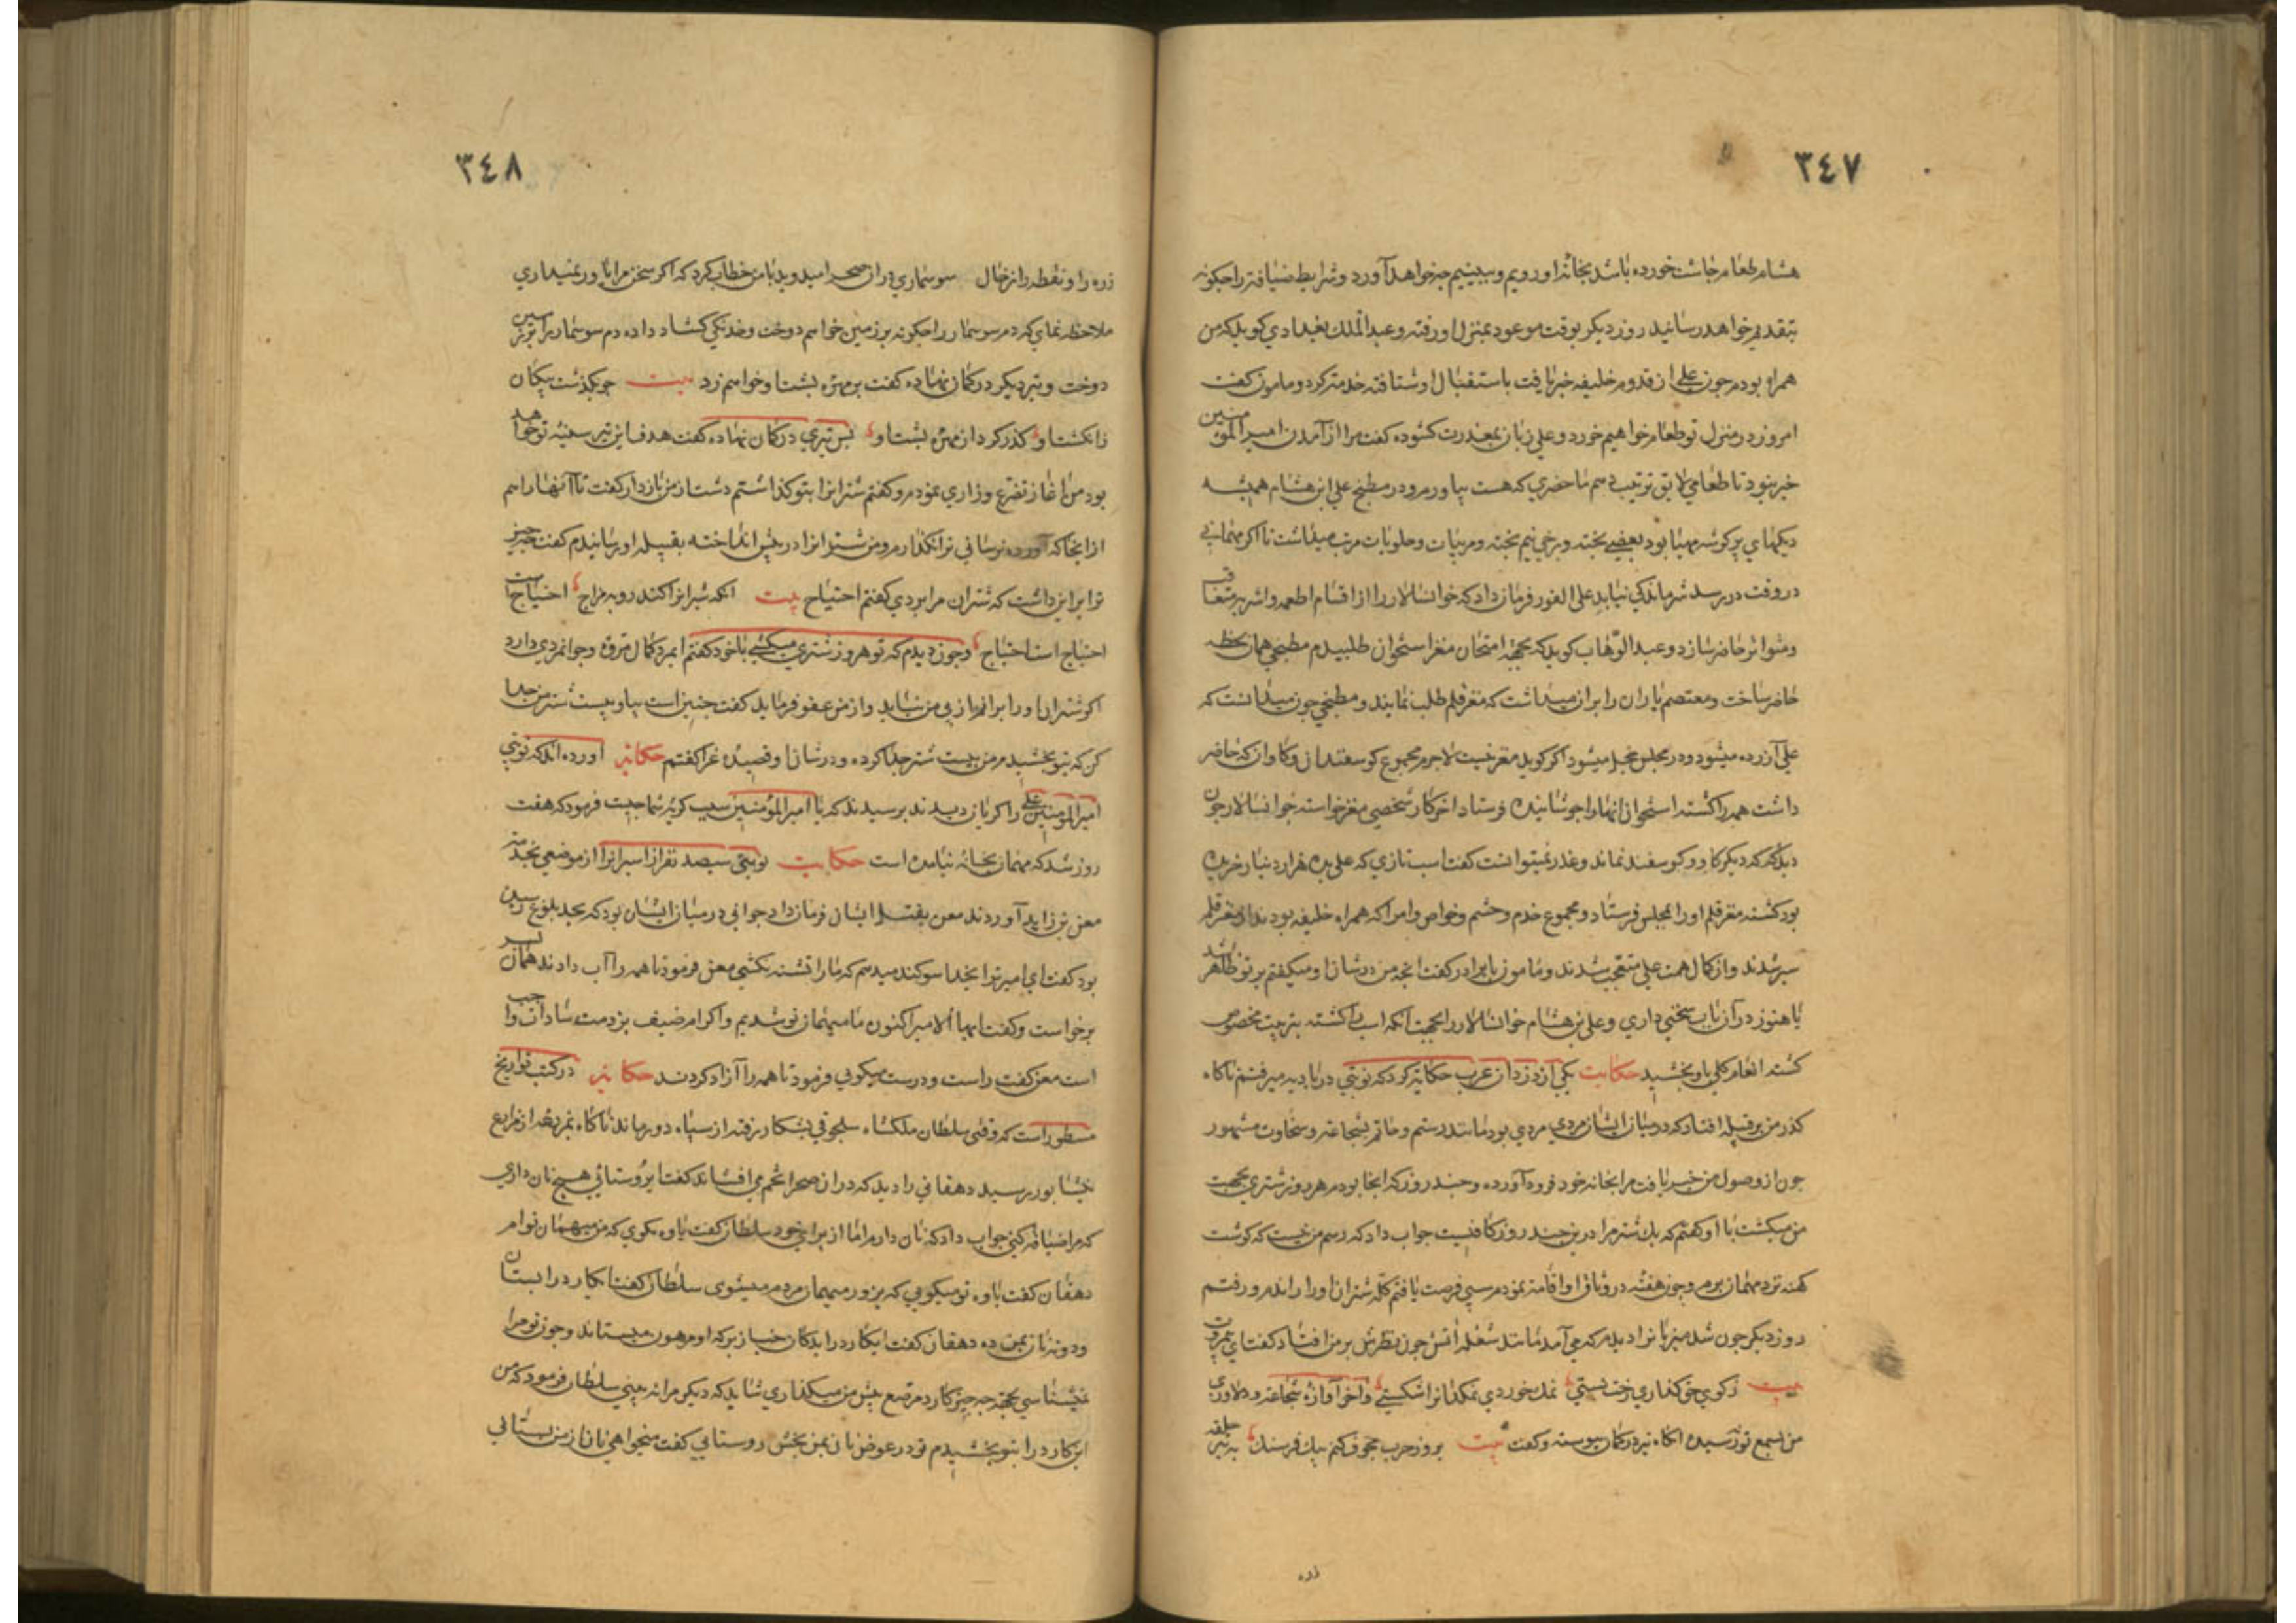 ٣٤٧
هشام طعام جاشت خورده باشد بخانه او رویم و ببینیم چه خواهد آورد و شرایط ضیافت را چکونه
بتقدیم خواهد رسانید روز دیکر بوقت موعود بمنزل او رفته و عبد الملک بغدادی کوید که من
همراه او بودم جون علی از قدوم خلیفه خبر یافت باستقبال او شتافته خدمت کرد و مامون کفت
امروز در منزل تو طعام خواهیم خورد و علی زبان بمعذرت کشوده کفت مرا از آمدن امیر المؤمنین
خبر نبود تا طعامی لایق ترتیب دهم ما حضری که هست بیاورم و در مطبخ علی ابن هشام همیشه
دیکهای پر کوشت مهیا بود بعضی پخته و برخی نیم پخته و مربیات و حلویات مرتب میداشت تا اکر مهمانی
در وقت در رسد شرمندکی نیابد علی الفور فرمان داد که خوانسالار را از اقسام اطعمه و اشربه متعاقب
و متواتر حاضر سازد و عبد الوهاب کوید که بجهة امتحان مغز استخوان طلبیدم مطبخی همان لحظه
حاضر ساخت و معتصم یاران را بران میداشت که مغز قلم طلب نمایند و مطبخی جون میدانست که
علی آزرده میشود و در مجلس خجل میشود اکر کوید مغز نیست لاجرم مجموع کوسفندان و کاوان که حاضر
داشت همه را کشته استخوان انها را جوشانیده فرستاد اخر کار شخصی مغز خواست خوانسالار جون
دید که دیکر کاو و کوسفند نماند و عذر نمیتوانست کفت اسب تازی که علی بده هزار دینار خریده
بود کشته مغز قلم او را بمجلس فرستاد و مجموع خدم و حشم و خواص و امرا که همراه خلیفه بودند از مغز قلم
سیر شدند و از کمال همت علی متعجب شدند و مامون با برادر کفت انچه من در شان او میکفتم بر تو ظاهر شد
یا هنوز در آن باب سخنی داری و علی بن هشام خوانسالار را بجهت آنکه اسب را کشته بتربیت مخصوص
کشته انعام کلی باو بخشید حکایت یکی از دزدان عرب حکایت کرد که نوبتی در بادیه میرفتم ناکاه
کذر من بر قبیله افتاد که در میان ایشان مردی بود مانند رستم و حاتم بشجاعت و سخاوت مشهور
جون از وصول من خبر یافت مرا بخانه خود فرود آورده و چند روز که انجا بودم هر روز شتری بجهت
من میکشت با او کفتم که یک شتر مرا درین چند روز کافیست جواب داد که رسم من نیست که کوشت
کهنه نزد مهمان برم و چون هفته در وثاق او اقامت نمودم سپس فرصت یافتم کله شتران او را راندم و رفتم
روز دیکر جون شد میزبان را دیدم که می آمد مانند شعله اتش جون نظرش بر من افتاد کفت ای بیمروت
بیت ز کوی حق کذاری رخت بستی نمک خوردی نمکدانرا شکستی و آخر آوازه شجاعت و دلاوری
من بسمع تو نرسیده انکاه تیر در کمان پیوسته و کفت بیت بروز حرب جوف کنم بیک فرسنک به تیر حلقه
زره
٣٤٨
زره را و نقطه را ز خال سوسماری در ان صحرا میدوید با من خطاب کرد که اکر سخن مرا باور نمیداری
ملاحظه نمای که دم سوسمار را چکونه بر زمین خواهم دوخت و خدنکی کشاد داده دم سوسمار را بر زمین
دوخت و تیر دیکر در کمان نهاده کفت بر مهره پشت او خواهم زد بیت چو بکذشت پیکان
ز انکشت او کذر کرد از مهره پشت او پس تیری در کمان نهاده کفت هدف این تیر سینه تو خواهد
بود من اغاز تضرع و زاری نمودم و کفتم شتران را بتو کذاشتم دست از من بازدار کفت تا آنها را هم
از انجا که آورده نرسانی ترا نکذارم و من شتران را در پیش انداخته بقبیله او رسانیدم کفت چه چیز
ترا بر این داشت که شتران مرا بردی کفتم احتیاج بیت انکه شیران را کند روبه مزاج احتیاج است
احتیاج است احتیاج و جون دیدم که تو هر روز شتری میکشی با خود کفتم این مرد کمال مروة و جوانمردی دارد
اکر شتران او را برانم از پی من نیاید و از من عفو فرماید کفت چنین است بیا و بیست شتر من جدا
کن که بتو بخشیدم من بیست شتر جدا کرده و در شان او قصیده غرا کفتم حکایت آورده اند که نوبتی
امیر المؤمنین علی را کریان دیدند پرسیدند که یا امیر المؤمنین سبب کریه شما چیست فرمود که هفت
روز شد که مهمان بخانه نیامده است حکایت نوبتی سیصد نفر از اسیران را از موضعی بخدمت
معن بن زایده آوردند معن بقتل ایشان فرمان داد جوانی در میان ایشان بود که بحد بلوغ رسیده
بود کفت ای امیر ترا بخدا سوکند میدهم که ما را تشنه نکشی معن فرمود تا همه را آب دادند همان پسر
برخواست و کفت ایها الامیر اکنون ما میهمان تو شدیم و اکرام ضیف بر ذمت سادات واجب
است معن کفت راست و درست میکویی فرمود تا همه را آزاد کردند حکایت در کتب تواریخ
مسطور است که وقتی سلطان ملکشاه سلجوقی بشکار رفته از سپاه دور ماند ناکاه بمزرعه از مزارع
نیشابور رسید دهقانی را دید که در ان صحرا تخم می افشاند کفت ای روستائی هیچ نان داری
که مرا ضیافت کنی جواب داد که نان دارم اما از برای خود سلطان کفت یاوه مکوی که من میهمان توام
دهقان کفت یاوه تو میکویی که بزور میهمان مردم میشوی سلطان کفت این کارد را بستان
و دو نان بمن ده دهقان کفت این کارد را بدکان خباز بر که او مرهون میستاند و چون تو مرا
نمیشناسی بجهة چه چیز کارد مرصع پیش من میکذاری شاید که دیکر مرا نه بینی سلطان فرمود که من
این کارد را بتو بخشیدم تو در عوض نان بمن بخش روستایی کفت میخواهی نان از من بستانی